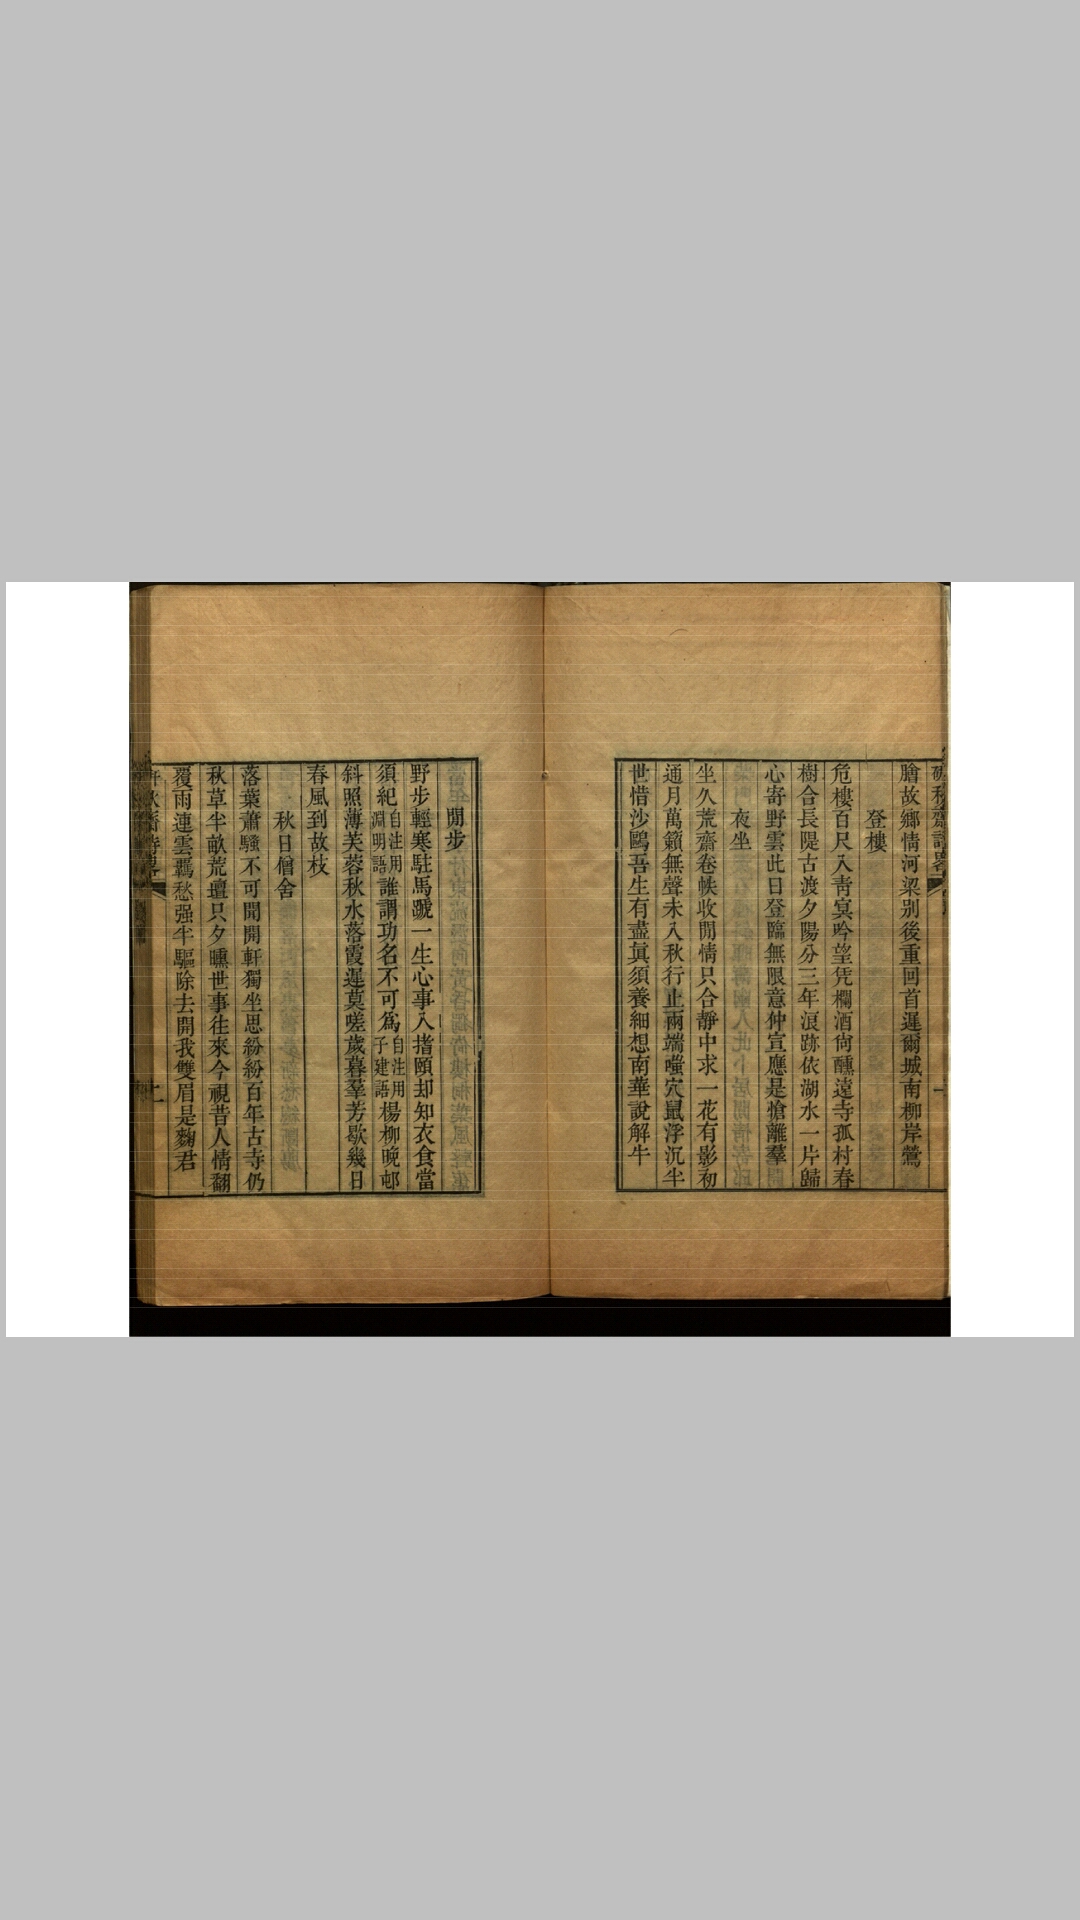 膾故鄉情河梁別後重回首遲爾城南柳岸鶯
登樓
危樓百尺入靑㝠吟望凭欄酒尙醺遠寺孤村春
樹合長隄古渡夕陽分三年浪跡依湖水一片歸
心寄野雲此日登臨無限意仲宣應是愴離羣
夜坐
坐久荒齋卷帙收閒情只合靜中求一花有影初
通月萬籟無聲未入秋行止兩端嗤穴鼠浮沉半
世惜沙鷗吾生有盡眞須養細想南華說解牛
閒步
野步輕寒駐馬蹏一生心事入指頤却知衣食當
須紀自注用淵明語誰謂功名不可爲自注用子建語楊柳晚邨
斜照薄芙蓉秋水落霞遲莫嗟歲暮羣芳歇幾日
春風到故枝
秋日僧舍
落葉蕭騷不可聞開軒獨坐思紛紛百年古寺仍
秋草半畝荒壇只夕曛世事往來今視昔人情翻
覆雨連雲羈愁强半驅除去開我雙眉是麴君